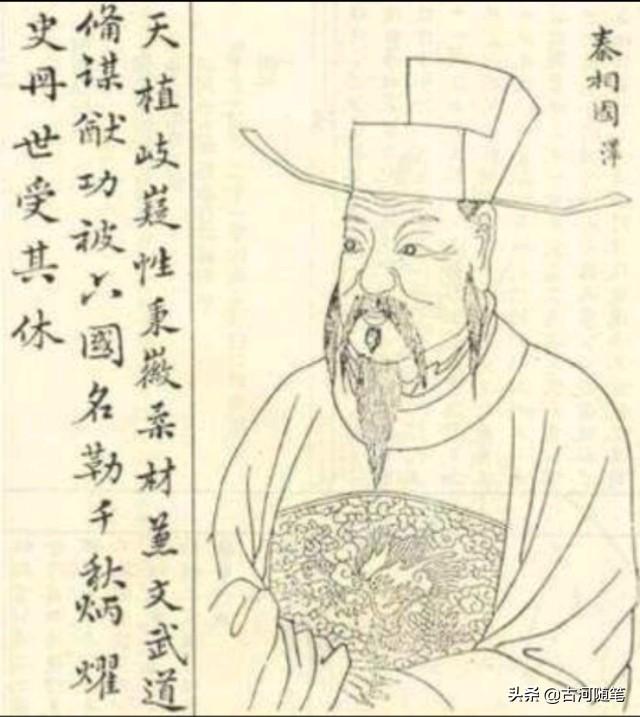 秦相國
天植岐嶷性秉徽柔材兼文武道
備謀猷功被六國名勒千秋炳耀
史冊世受其休
头条 @古河随笔